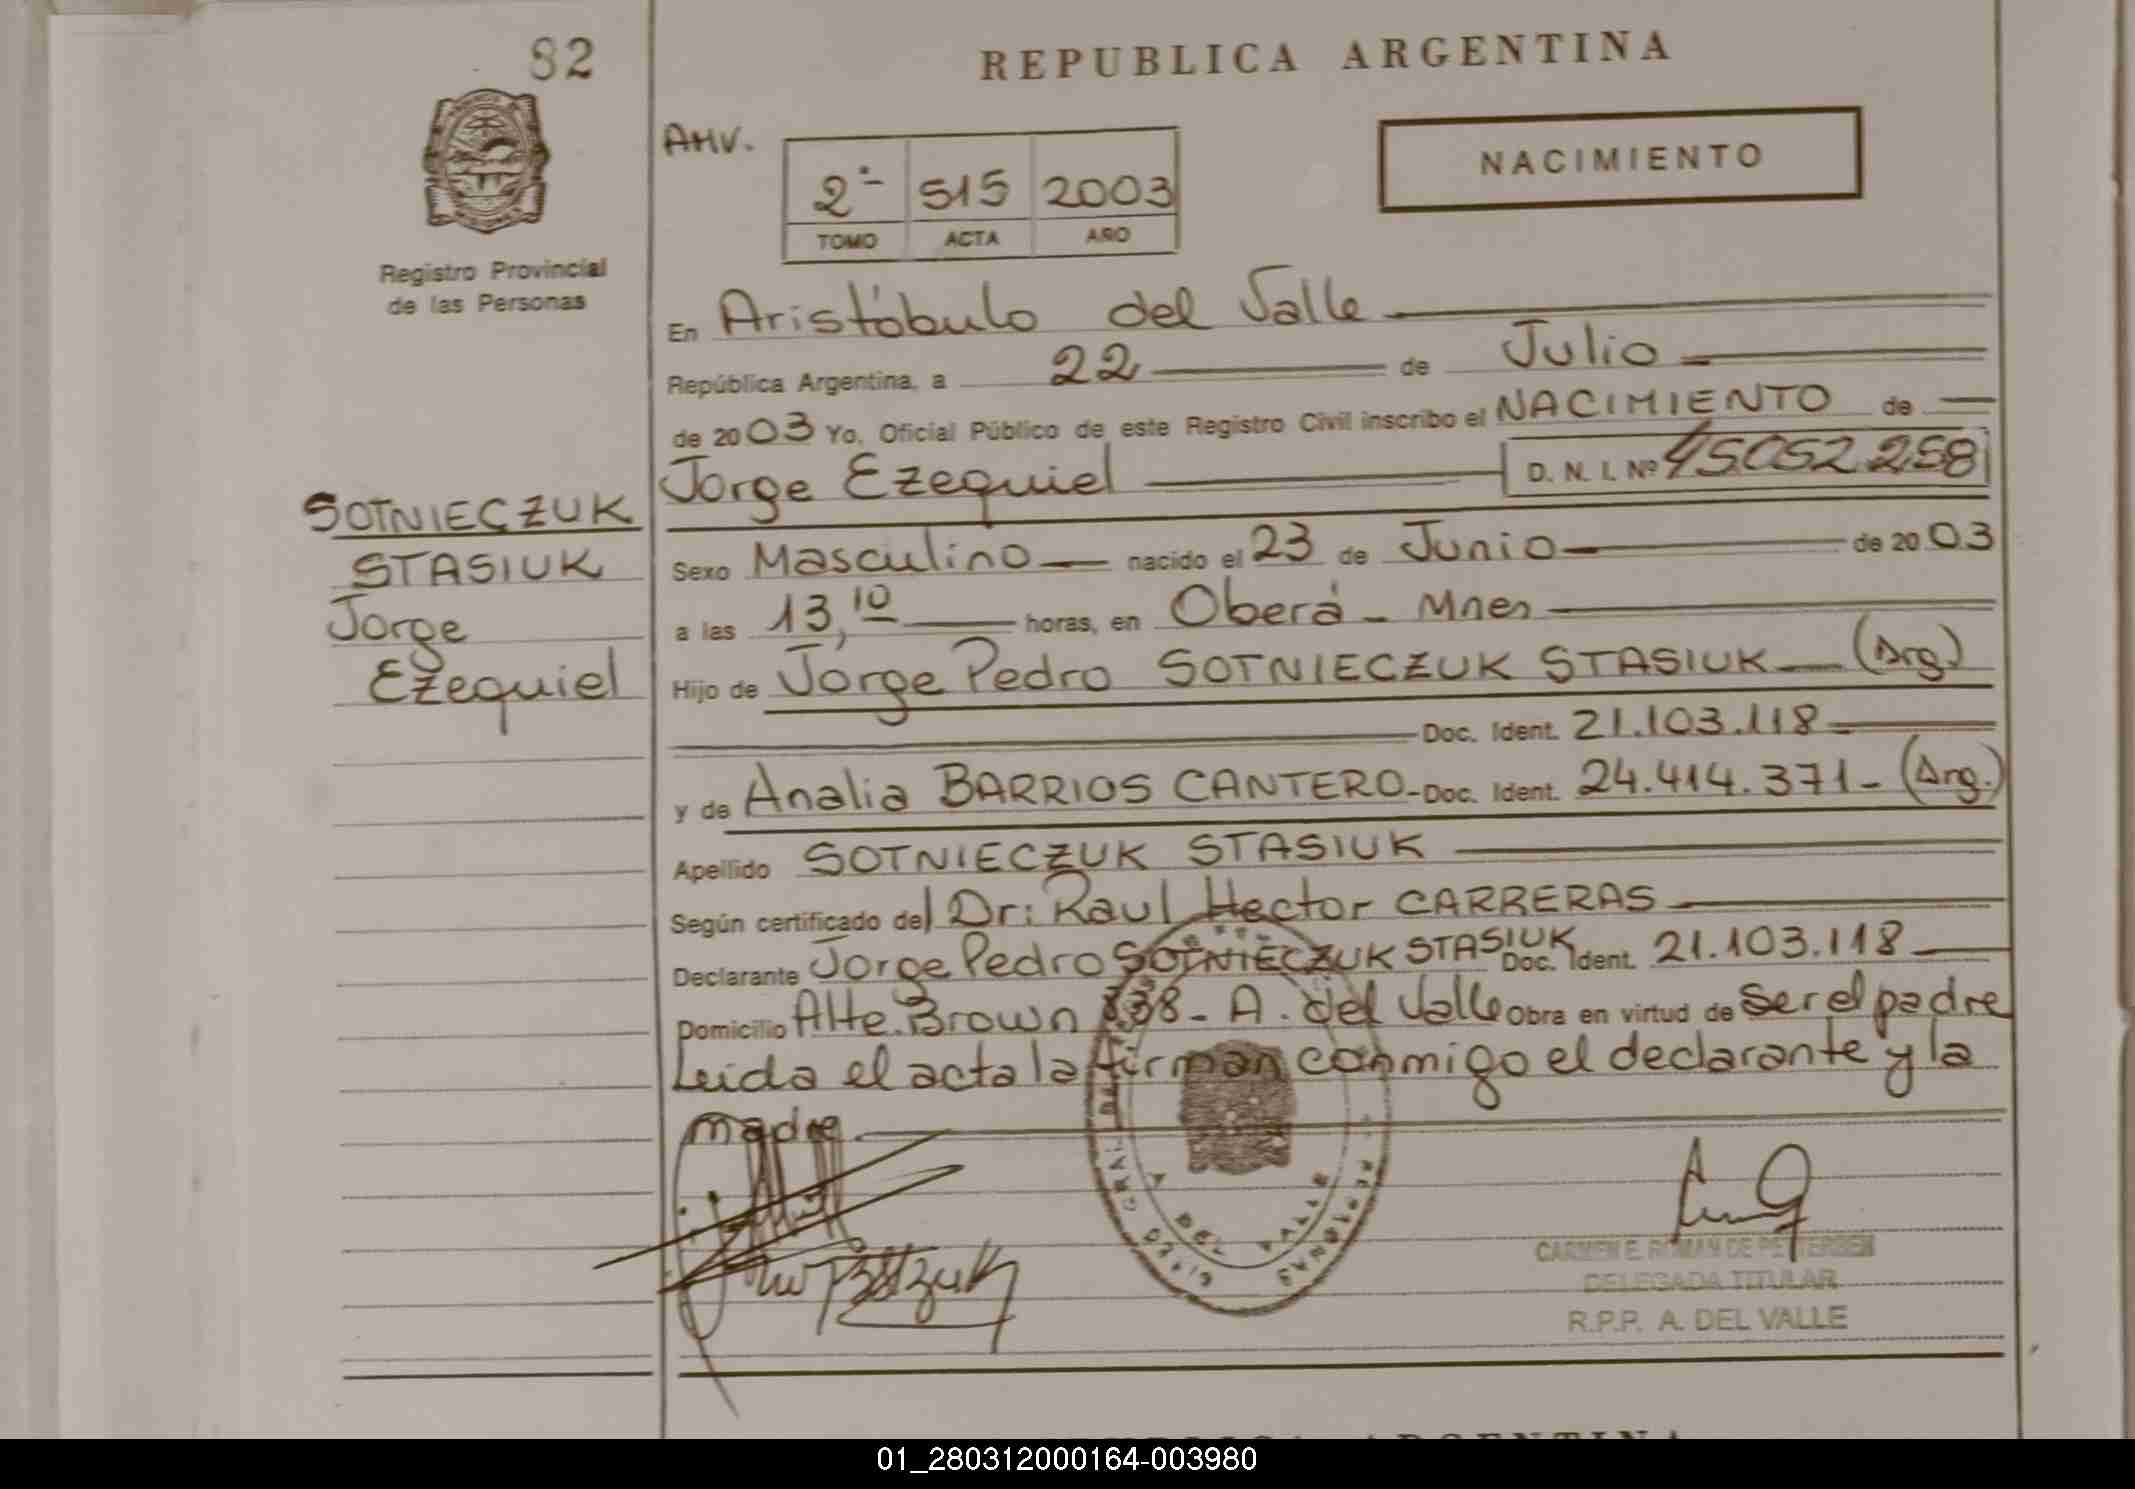 82
REPUBLICA ARGENTINA
AHV.
2º 515 2003
TOMO ACTA AÑO
NACIMIENTO
Registro Provincial
de las Personas
En Aristóbulo del Valle
República Argentina, a 22 de Julio
de 2003 Yo, Oficial Público de este Registro Civil inscribo el NACIMIENTO de
Jorge Ezequiel D. N. I. Nº 45052258
SOTNIECZUK
STASIUK
Jorge
Ezequiel
Sexo Masculino nacido el 23 de Junio de 2003
a las 13,10 horas, en Oberá - Mnes
Hijo de Jorge Pedro SOTNIECZUK STASIUK (Arg.)
Doc. Ident. 21.103.118
y de Analia BARRIOS CANTERO - Doc. Ident. 24.414.371 - (Arg.)
Apellido SOTNIECZUK STASIUK
Según certificado del Dr: Raul Hector CARRERAS
Declarante Jorge Pedro SOTNIECZUK STASIUK Doc. Ident. 21.103.118
Domicilio Alte. Brown 838 - A. del Valle Obra en virtud de ser el padre
Leída el acta la firman conmigo el declarante y la
madre
A DEL VALLE
CARMEN E. ROMAN DE PETTERSEN
DELEGADA TITULAR
R.P.P. A. DEL VALLE
01_280312000164-003980